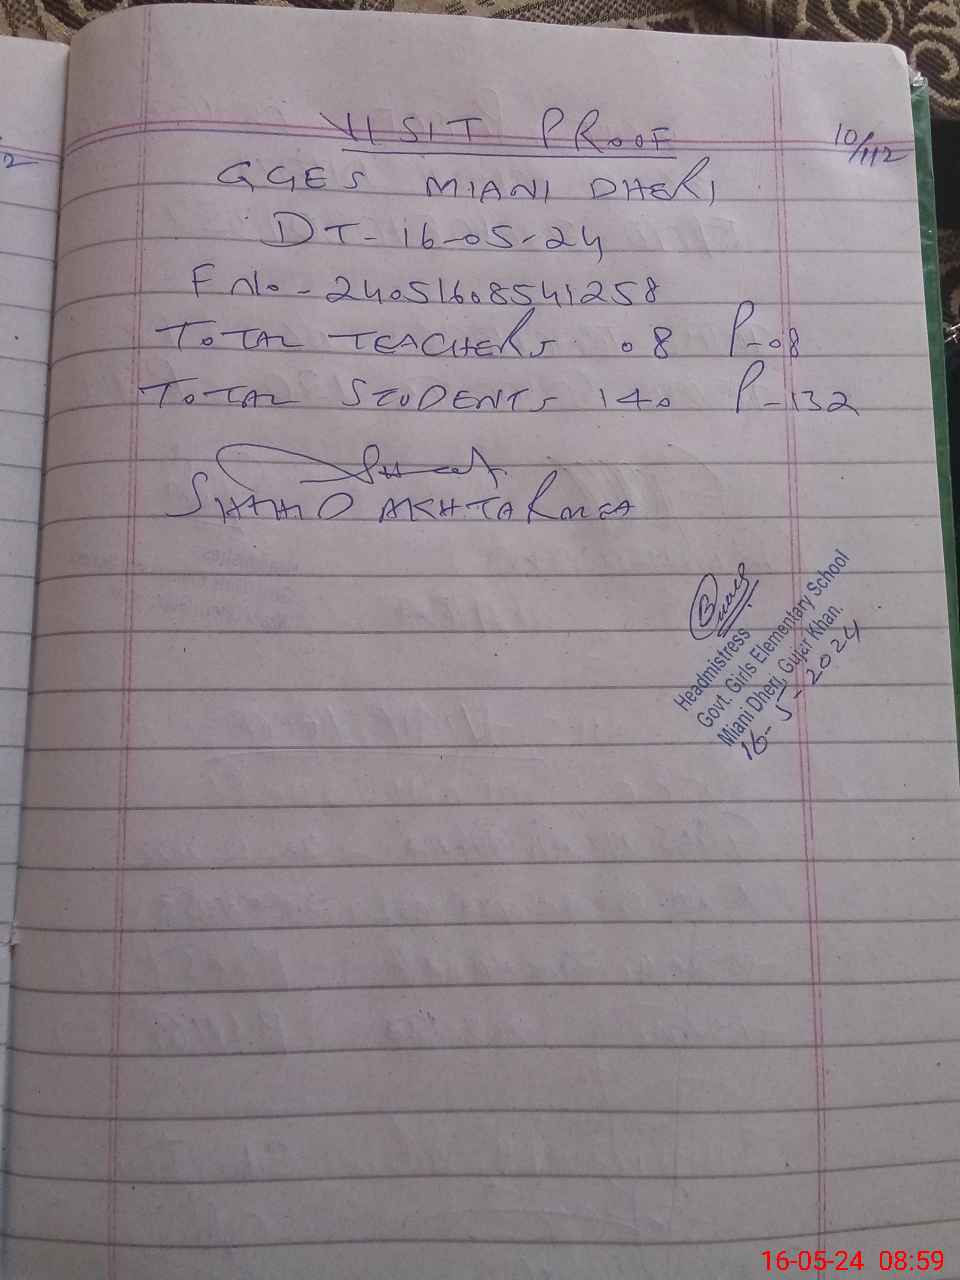 VISIT PROOF
10/112
GGES MIANI DHERI
DT-16-05-24
F No-24051608541258
TOTAL TEACHERS 08 P-08
TOTAL STUDENTS 140 P-132
AKHTAR MEA
Headmistress
Govt. Girls Elementary School
Miani Dheri, Gujar Khan.
16-5-2024
2
16-05-24 08:59